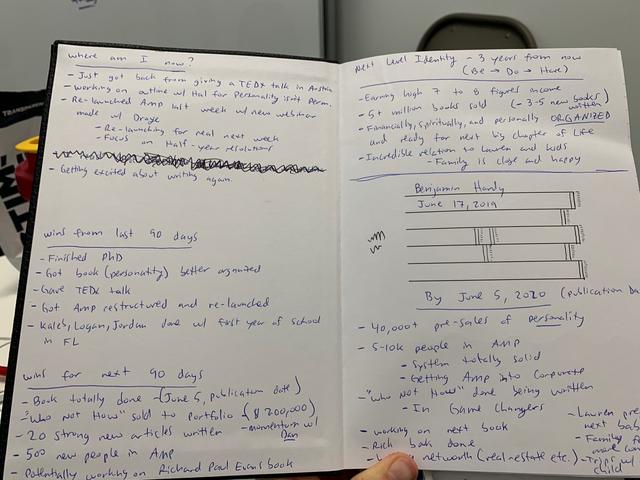 where am I now?
- Just got back from giving a TEDx talk in Austria
- working on outline w/ Hal for Personality isn't Perm.
- Re-launched Amp last week w/ new webinar
made w/ Draye
- Re-launching for real next week
- Focus on Half-year resolutions
- Getting excited about writing again
wins from last 90 days
- Finished PhD
- Got book (personality) better organized
- Gave TEDx talk
- Got Amp restructured and re-launched
- Kaleb, Logan, Jordan done w/ first year of school
in FL
wins for next 90 days
- Book totally done - (June 5, publication date)
- "Who Not How" sold to portfolio ($200,000)
- momentum w/
Dan
- 20 strong new articles written
- 500 new people in AMP
- Potentially working on Richard Paul Evans book
Next Level Identity - 3 years from now
(Be → Do → Have)
- Earning high 7 to 8 figures income
- 5+ million books sold (- 3-5 new books written)
- Financially, Spiritually, and personally ORGANIZED
and ready for next big chapter of Life
- Incredible relation to Lauren and kids
- Family is close and happy
Benjamin Hardy
June 17, 2019
By June 5, 2020 (publication Da
- 40,000+ pre-sales of personality
- 5-10k people in AMP
- System totally solid
- Getting Amp into corporate
- "Who Not How" done being written
- In Game Changers
- working on next book
- Rich book done
networth (real-estate etc.)
- Lauren pre
next bab
- Family
more
- Trips w/
child